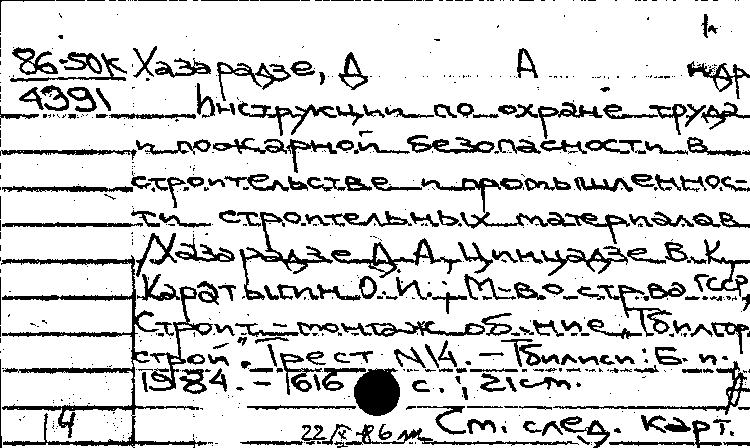 86-50к Хазарадзе, Д А и др
4391 Инструкции по охране труда
и пожарной безопасности в
строительстве и промышленнос-
ти строительных материалов
/Хазарадзе Д. А., Цинцадзе В. К.,
Каратыгин О. И.; М-во стр-ва ГССР,
Строит.-монтаж. об-ние „Тбилгор
строй". Трест N14. – Тбилиси: Б. и.,
1984. – 616 с.; 21см.
14 См. след. карт.